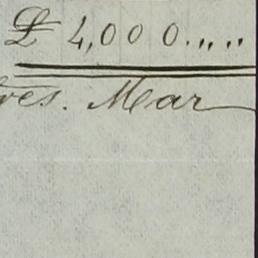 £ 4,000.,,..
res. Mar